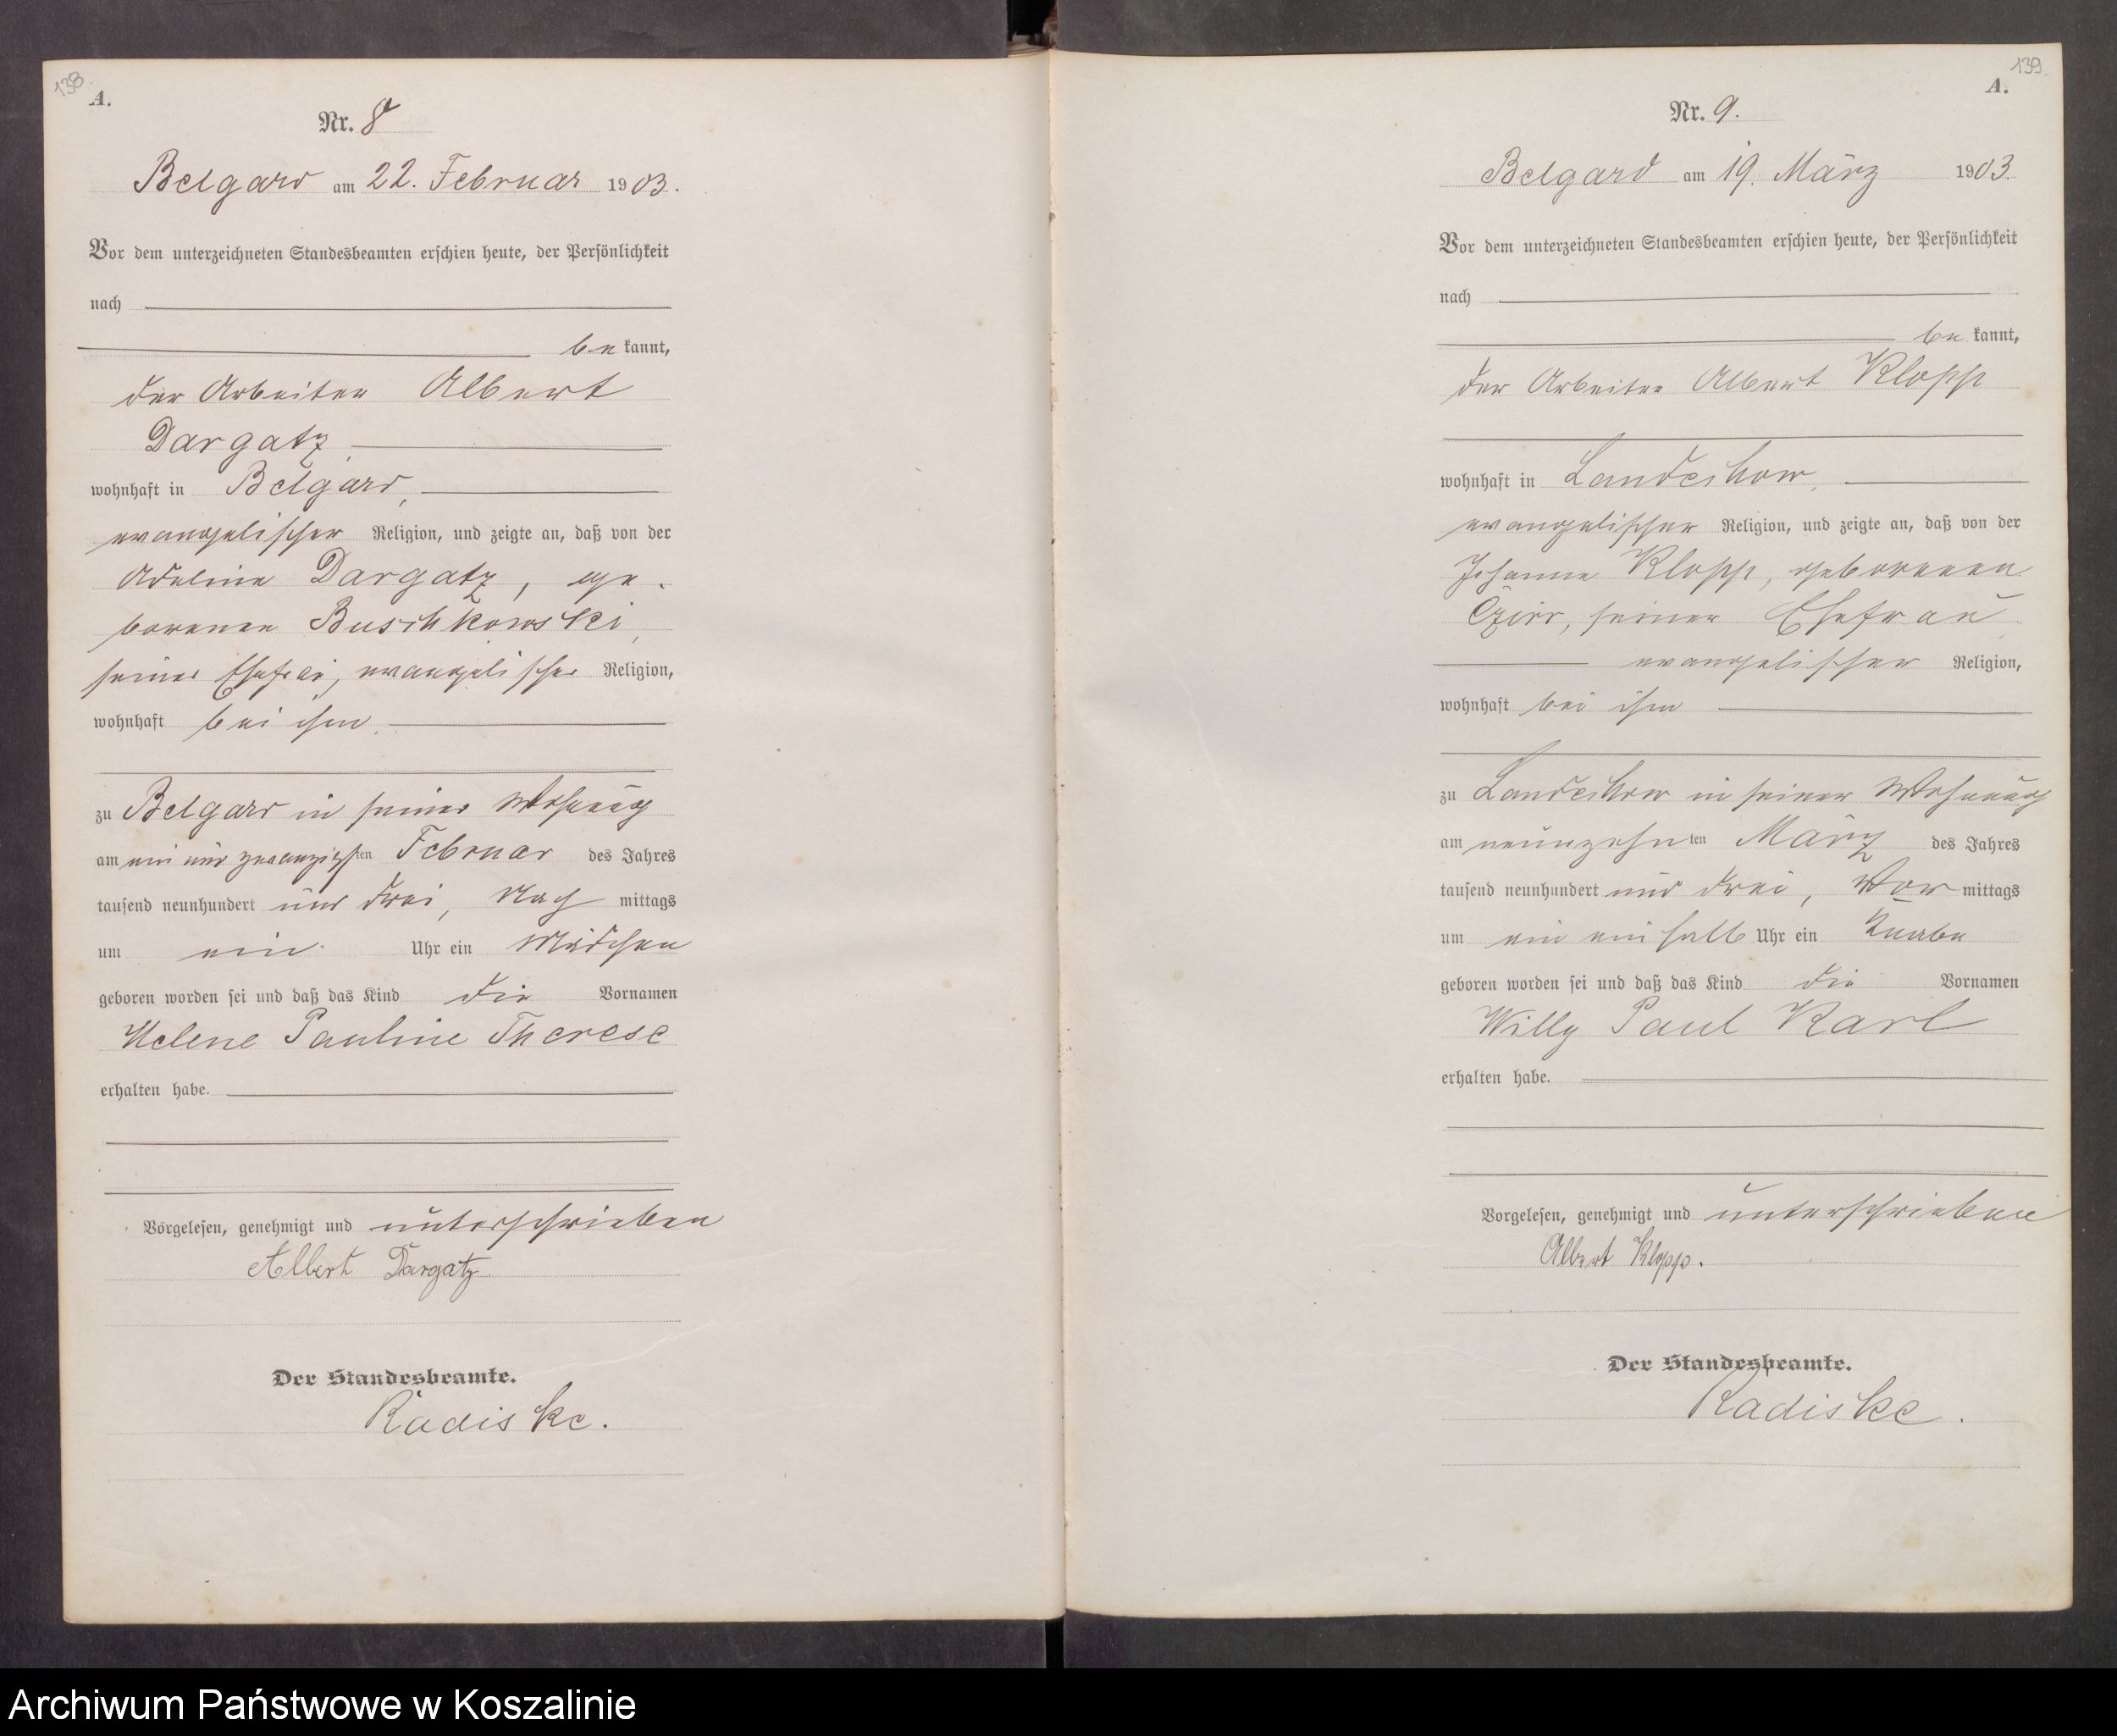 138.
A.
Nr. 8
Belgard am 22. Februar 1903.
Vor dem unterzeichneten Standesbeamten erschien heute, der Persönlichkeit
nach
be kannt,
der Arbeiter Albert
Dargatz
wohnhaft in Belgard,
evangelischer Religion, und zeigte an, daß von der
Adeline Dargatz, ge-
borenen Buschkowski,
seiner Ehefrau, evangelischer Religion,
wohnhaft bei ihm,
zu Belgard in seiner Wohnung
am ein und zwanzigsten Februar des Jahres
tausend neunhundert und drei, Nach mittags
um ein Uhr ein Mädchen
geboren worden sei und daß das Kind die Vornamen
Helene Pauline Therese
erhalten habe.
Vorgelesen, genehmigt und unterschrieben
Albert Dargatz
Der Standesbeamte.
Radiske.
139.
A.
Nr. 9.
Belgard am 19. März 1903.
Vor dem unterzeichneten Standesbeamten erschien heute, der Persönlichkeit
nach
be kannt,
der Arbeiter Albert Klopp
wohnhaft in Landechow,
evangelischer Religion, und zeigte an, daß von der
Johanne Klopp, geborenen
Czirr, seiner Ehefrau,
evangelischer Religion,
wohnhaft bei ihm
zu Landechow in seiner Wohnung
am neunzehnten März des Jahres
tausend neunhundert und drei, Vor mittags
um ein ein halb Uhr ein Knabe
geboren worden sei und daß das Kind die Vornamen
Willy Paul Karl
erhalten habe.
Vorgelesen, genehmigt und unterschrieben
Albert Klopp.
Der Standesbeamte.
Radiske.
Archiwum Państwowe w Koszalinie